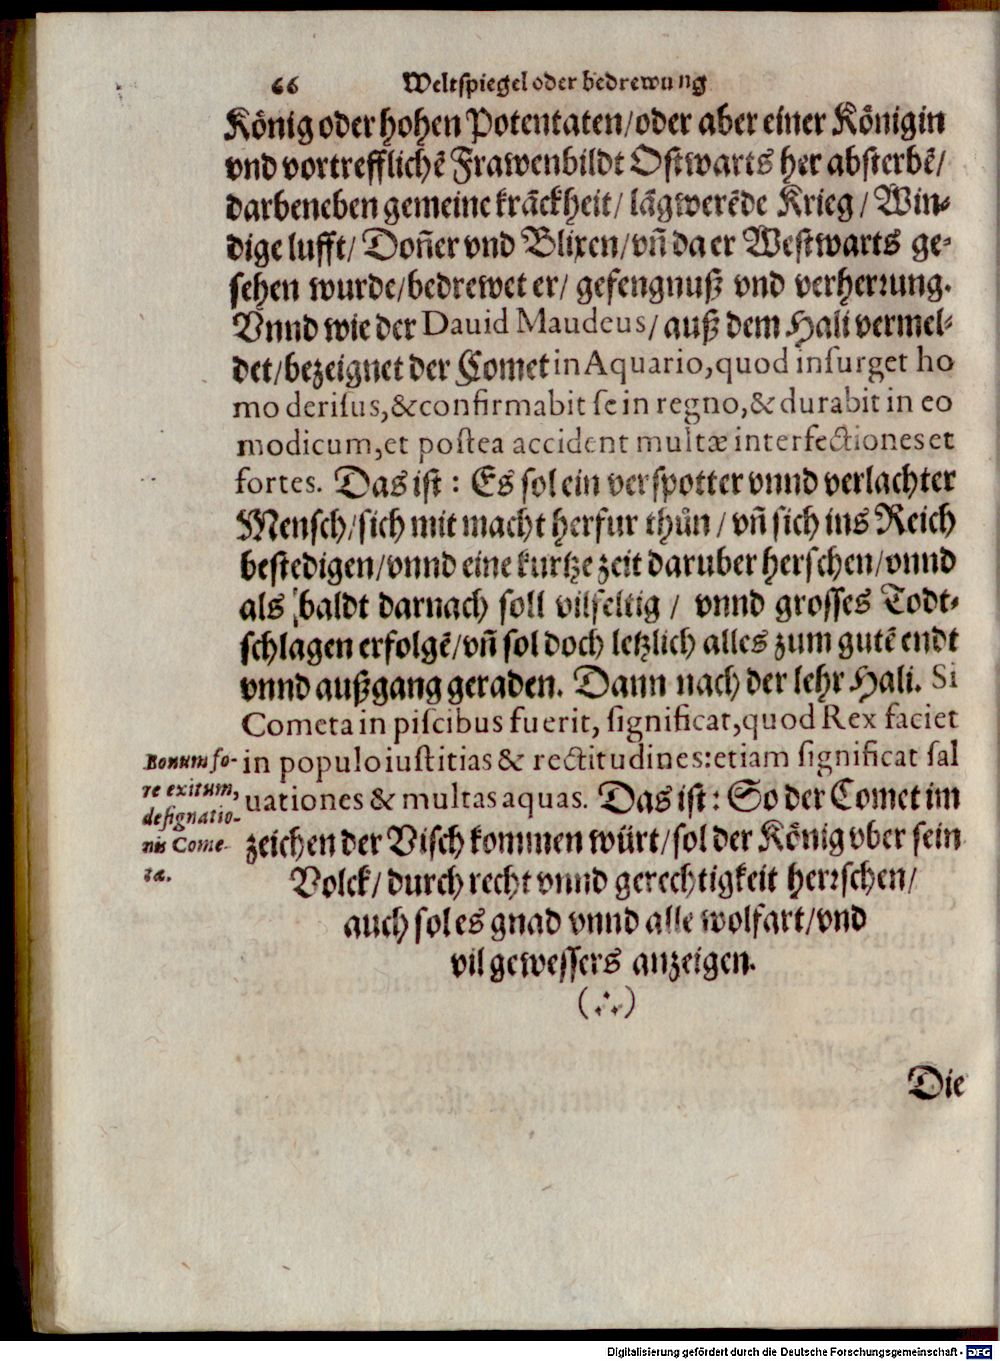 66 Weltspiegel oder bedrewung
König oder hohen Potentaten/oder aber einer Königin
vnd vortrefflichē Frawenbildt Ostwarts her absterbē/
darbeneben gemeine krāckheit/ lāgwerēde Krieg / Win-
dige lufft/ Doñer vnd Blixen/vñ da er Westwarts ge-
sehen wurde/bedrewet er/ gefengnuß vnd verherrung.
Vnnd wie der Dauid Maudeus/ auß dem Hali vermel-
det/bezeignet der Comet in Aquario, quod insurget ho
mo derisus, & confirmabit se in regno, & durabit in eo
modicum, et postea accident multæ interfectiones et
fortes. Das ist : Es sol ein verspotter vnnd verlachter
Mensch/sich mit macht herfur thůn / vñ sich ins Reich
bestedigen/vnnd eine kurtze zeit daruber herschen/vnnd
als baldt darnach soll vilfeltig / vnnd grosses Todt-
schlagen erfolgē/vñ sol doch letzlich alles zum gutē endt
vnnd außgang geraden. Dann nach der lehr Hali. Si
Cometa in piscibus fuerit, significat, quod Rex faciet
in populo iustitias & rectitudines: etiam significat sal
uationes & multas aquas. Das ist : So der Comet im
zeichen der Visch kommen würt/sol der König vber sein
Volck/ durch recht vnnd gerechtigkeit herrschen/
auch sol es gnad vnnd alle wolfart/vnd
vil gewessers anzeigen.
Bonum fo-
re exitum,
designatio-
nis Come-
tæ.
Die
Digitalisierung gefördert durch die Deutsche Forschungsgemeinschaft - DFG